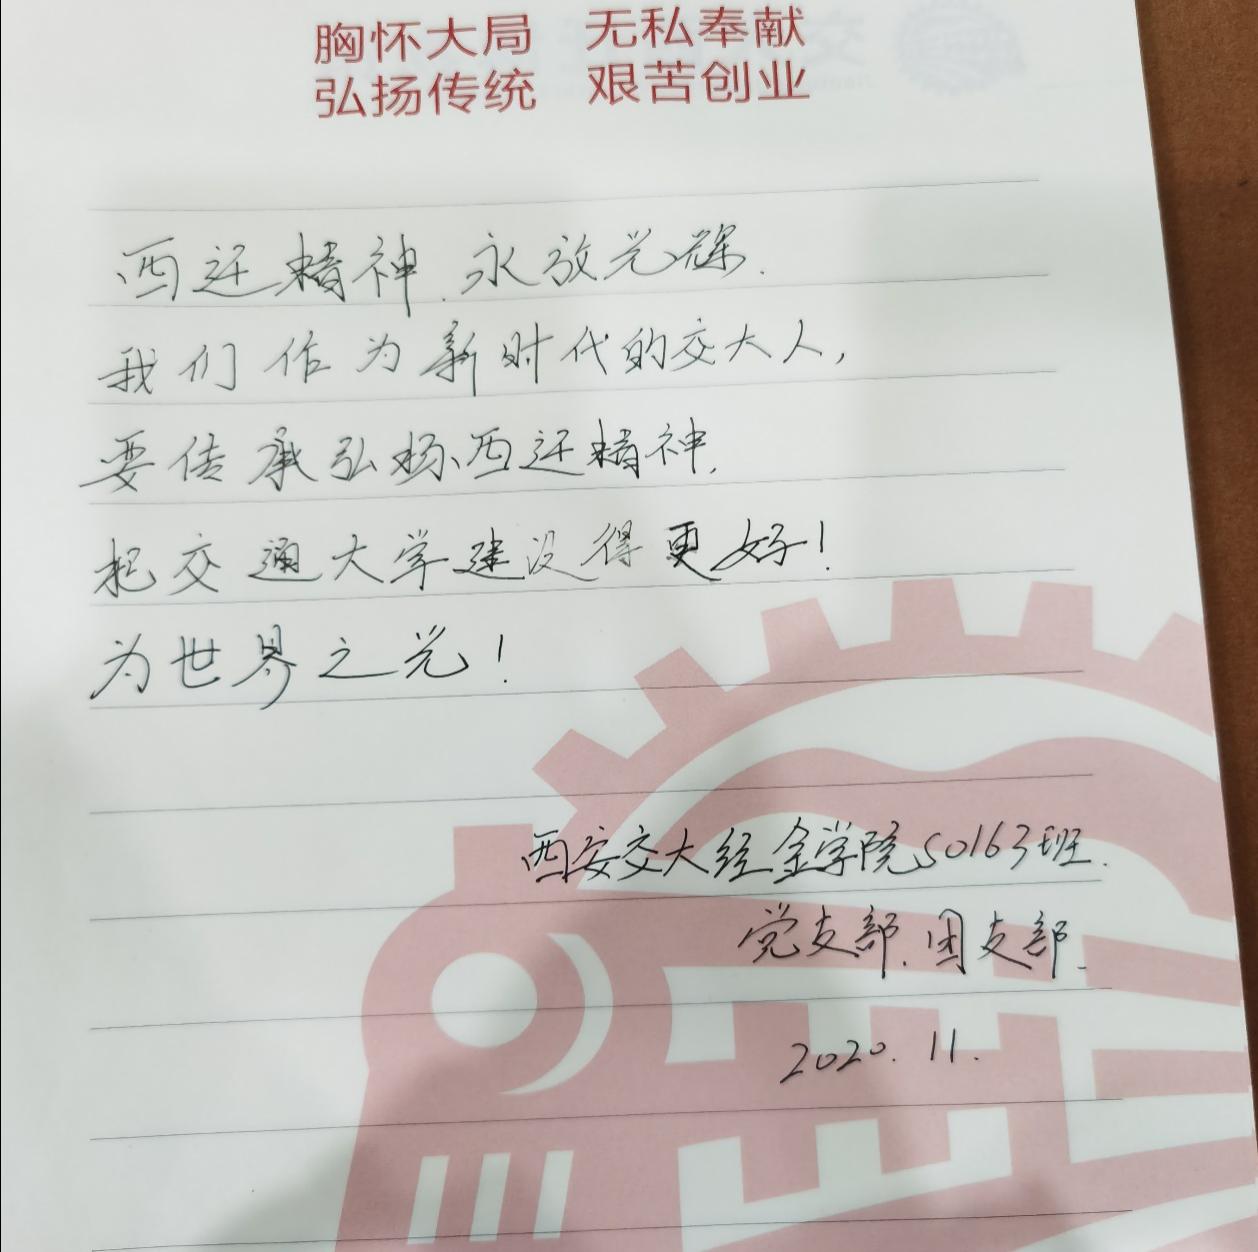 胸怀大局 无私奉献
弘扬传统 艰苦创业
西迁精神.永放光辉.
我们作为新时代的交大人,
要传承弘扬西迁精神,
把交通大学建设得更好!
为世界之光!
西安交大经金学院S0163班.
党支部.团支部.
2020.11.